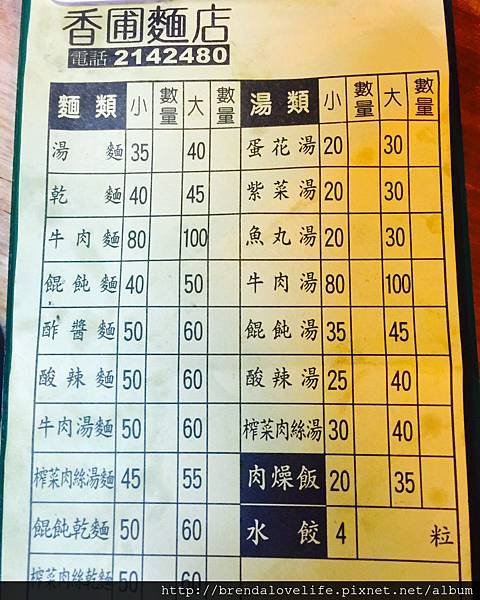 香圃麵店
電話 2142480
麵類 小 數量 大 數量 湯類 小 數量 大 數量
湯麵 35 40 蛋花湯 20 30
乾麵 40 45 紫菜湯 20 30
牛肉麵 80 100 魚丸湯 20 30
餛飩麵 40 50 牛肉湯 80 100
酢醬麵 50 60 餛飩湯 35 45
酸辣麵 50 60 酸辣湯 25 40
牛肉湯麵 50 60 榨菜肉絲湯 30 40
榨菜肉絲湯麵 45 55 肉燥飯 20 35
餛飩乾麵 50 60 水餃 4 粒
榨菜肉絲乾麵 50 60
http://brendalovelife.pixnet.net/album